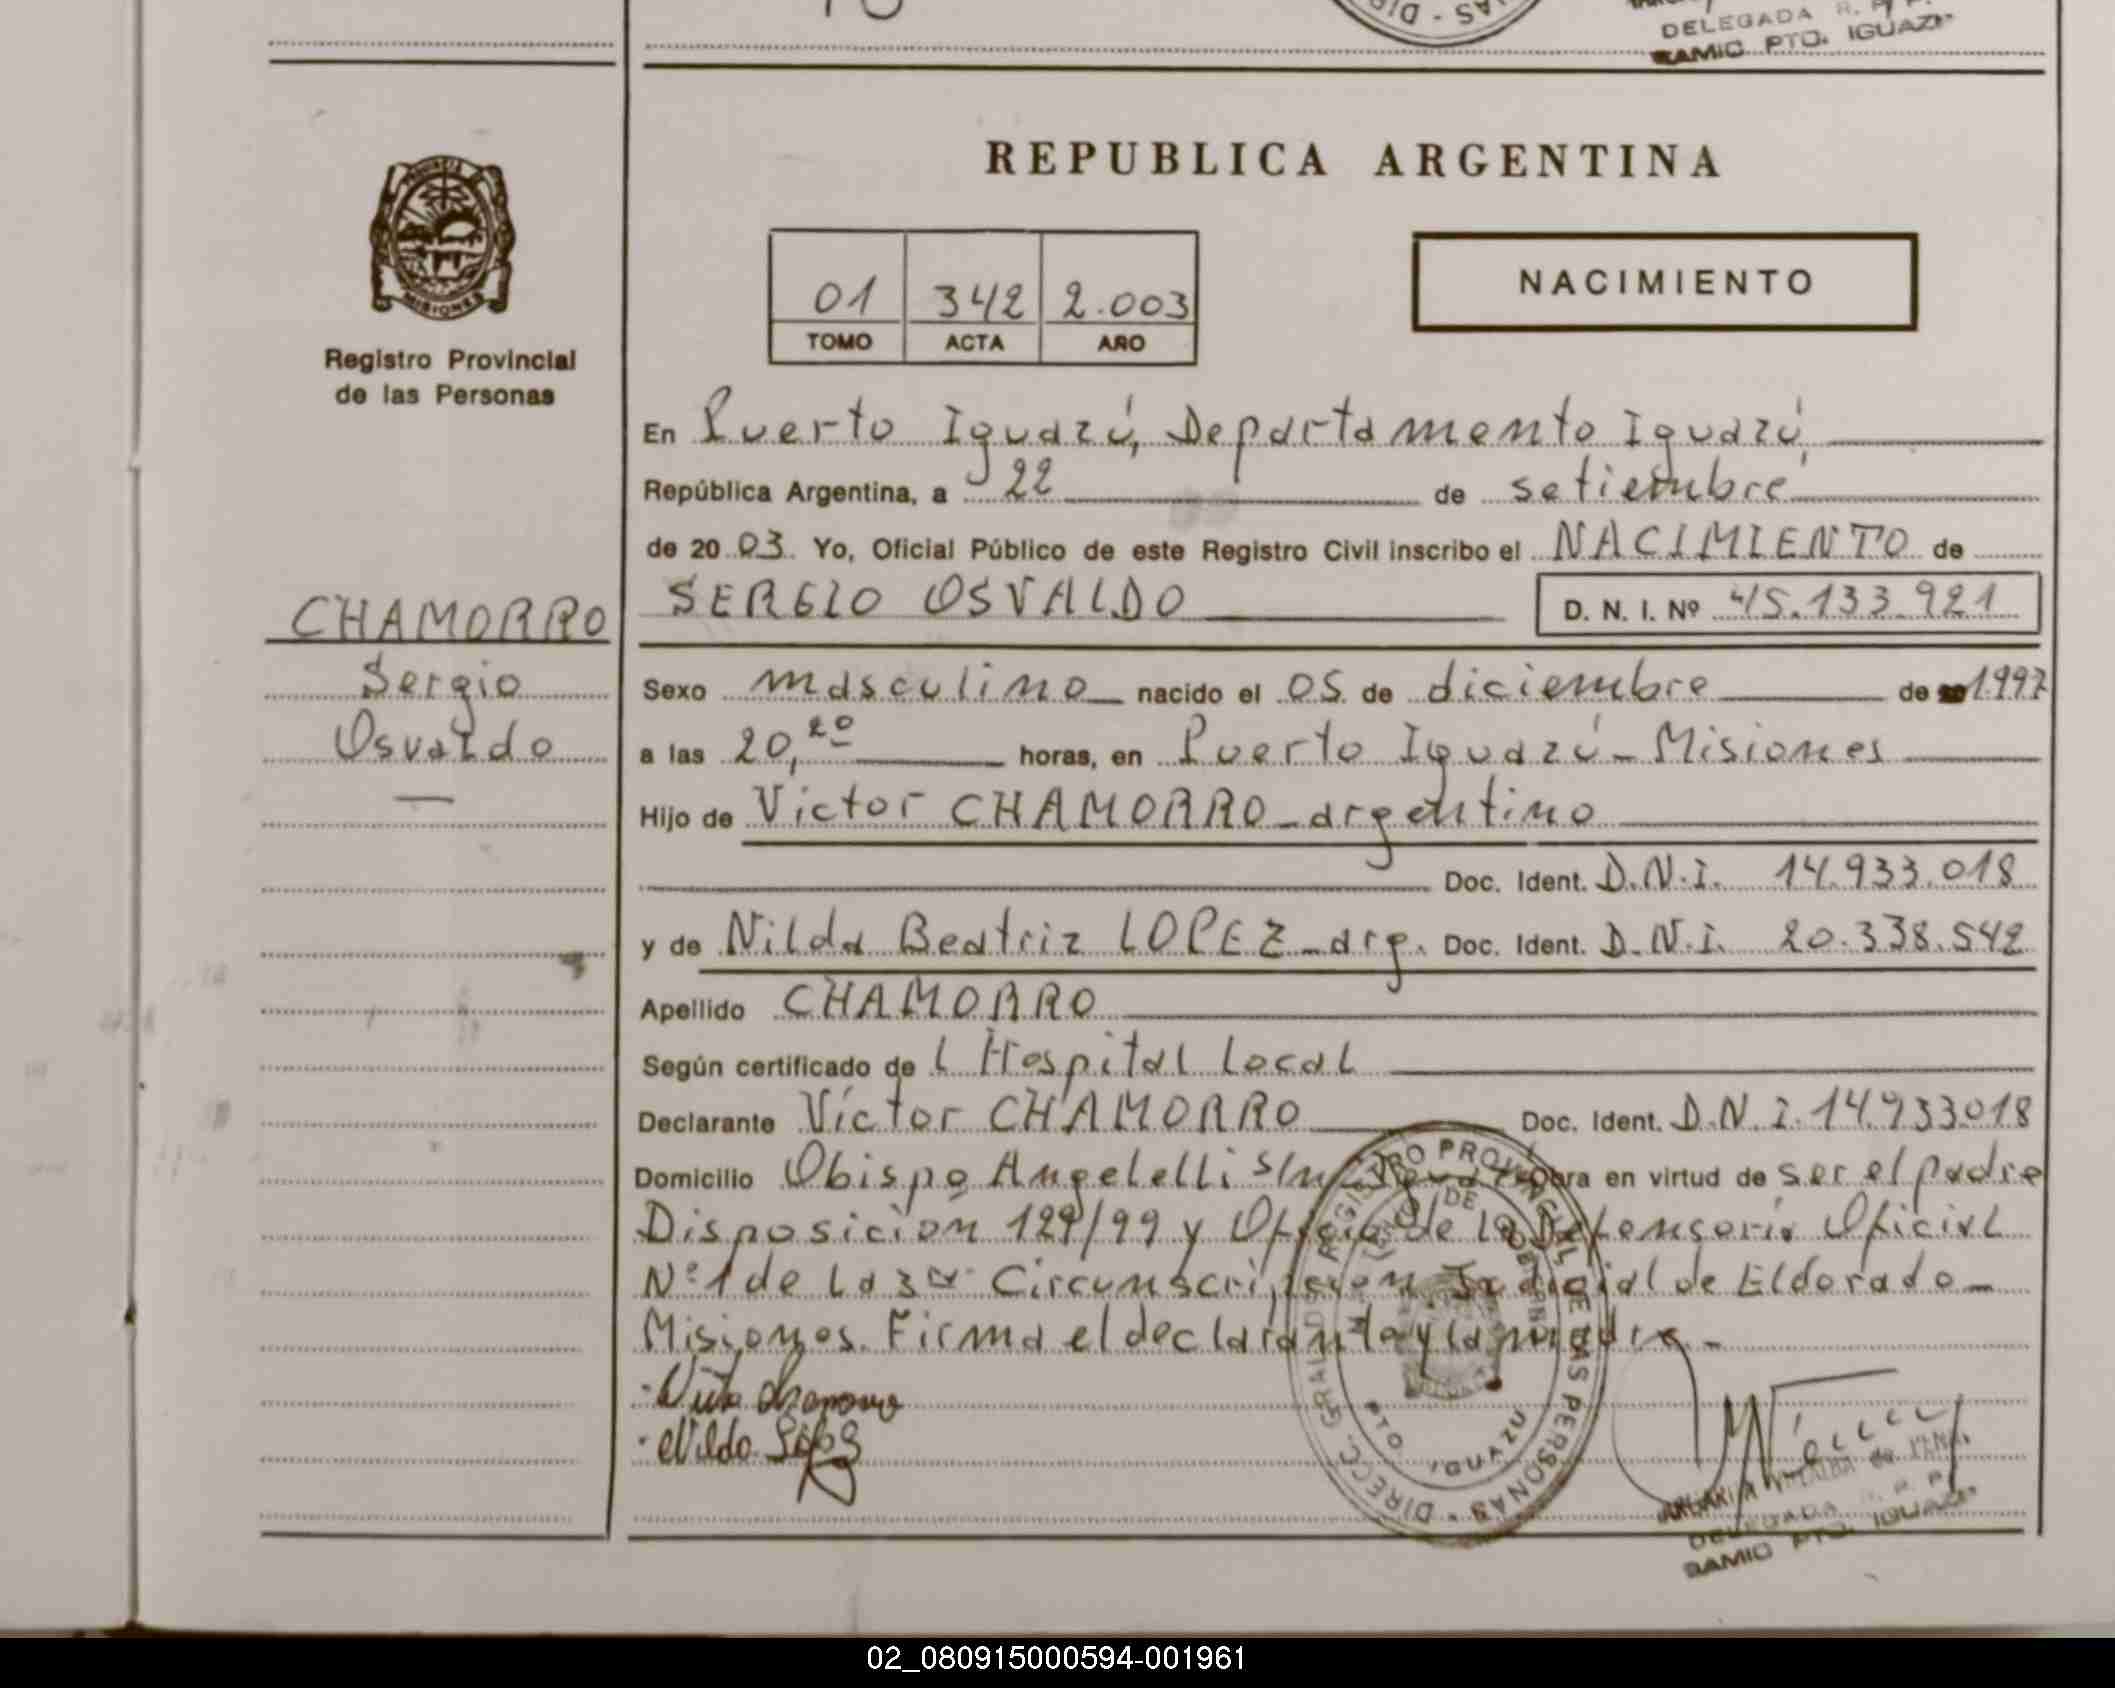 DELEGADA R. P. P.
SAMIC PTO. IGUAZU
REPUBLICA ARGENTINA
PROVINCIA DE MISIONES
01 342 2.003
TOMO ACTA AÑO
NACIMIENTO
Registro Provincial
de las Personas
En Puerto Iguazú, Departamento Iguazú,
República Argentina, a 22 de setiembre
de 2003 Yo, Oficial Público de este Registro Civil inscribo el NACIMIENTO de
CHAMORRO
Sergio
Osvaldo
SERGIO OSVALDO D. N. I. Nº 45.133.921
Sexo masculino nacido el 05 de diciembre de 1997
a las 20,20 horas, en Puerto Iguazú - Misiones
Hijo de Victor CHAMORRO - argentino
Doc. Ident. D.N.I. 14.933.018
y de Nilda Beatriz LOPEZ - arg. Doc. Ident. D.N.I. 20.338.542
Apellido CHAMORRO
Según certificado de l Hospital Local
Declarante Víctor CHAMORRO Doc. Ident. D.N.I. 14.933.018
Domicilio Obispo Angelelli s/n Obra en virtud de ser el padre
Disposición 129/99 y Oficio de la Defensoría Oficial
Nº 1 de La 3ra Circunscripción Judicial de Eldorado -
Misiones. Firma el declarante y la madre. -
Nilda López
DIRECC. GRAL. DEL REGISTRO PROVINCIAL DE LAS PERSONAS
PTO. IGUAZU
DELEGADA R. P. P.
SAMIC PTO. IGUAZU
02_080915000594-001961